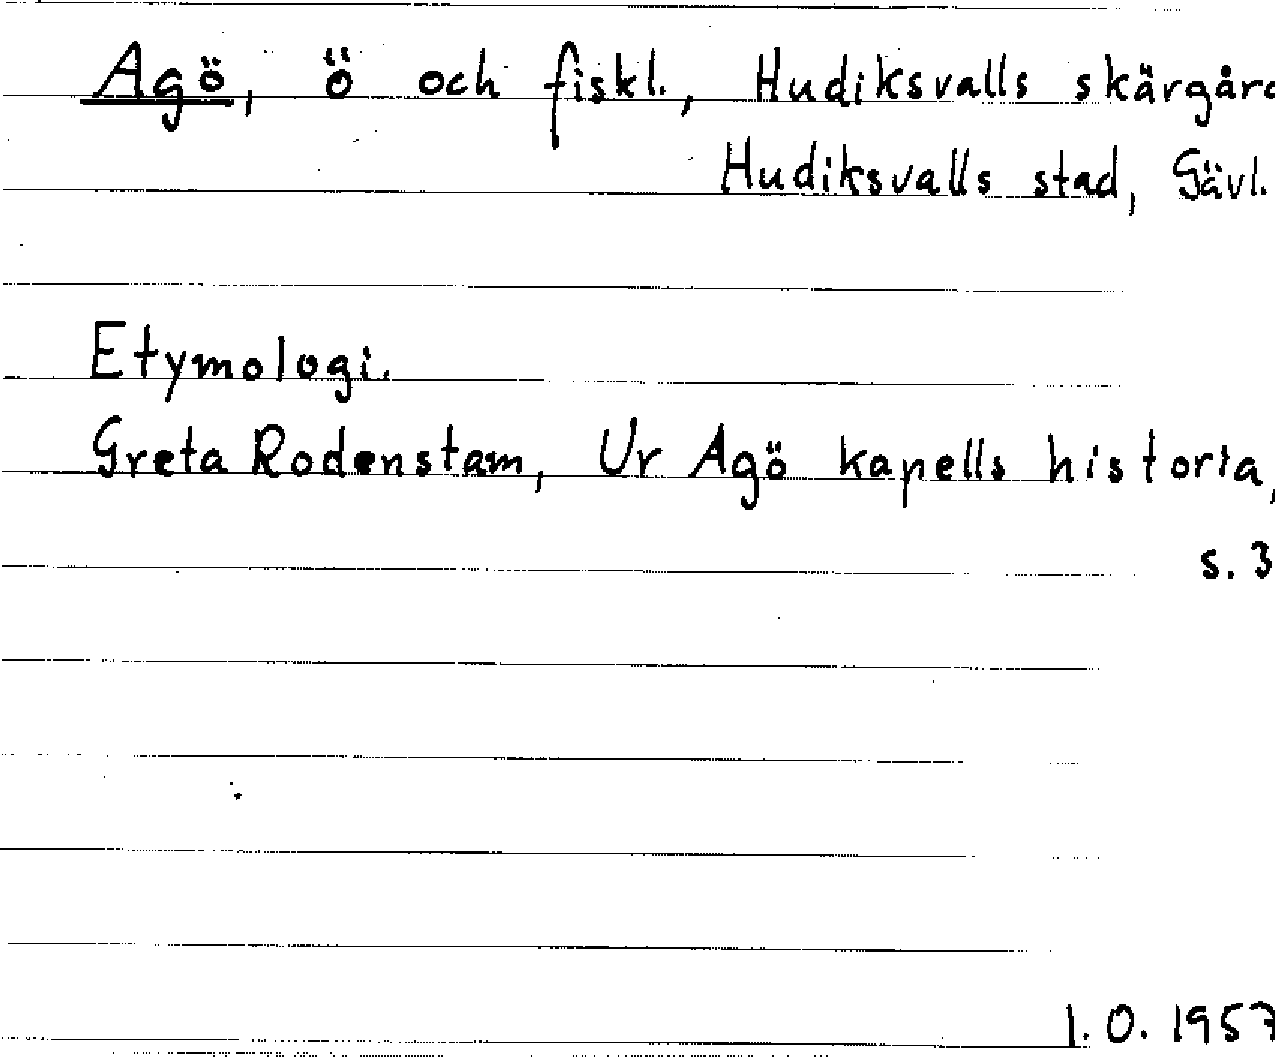 Agö, ö och fiskl., Hudiksvalls skärgård
Hudiksvalls stad, Gävl.
Etymologi.
Greta Rodenstam, Ur Agö kapells historia,
s. 3
I.O. 1957